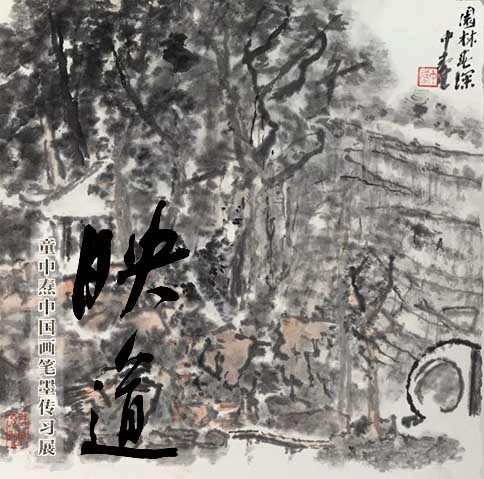 園林春深
中焘
映道
童中焘中国画笔墨传习展